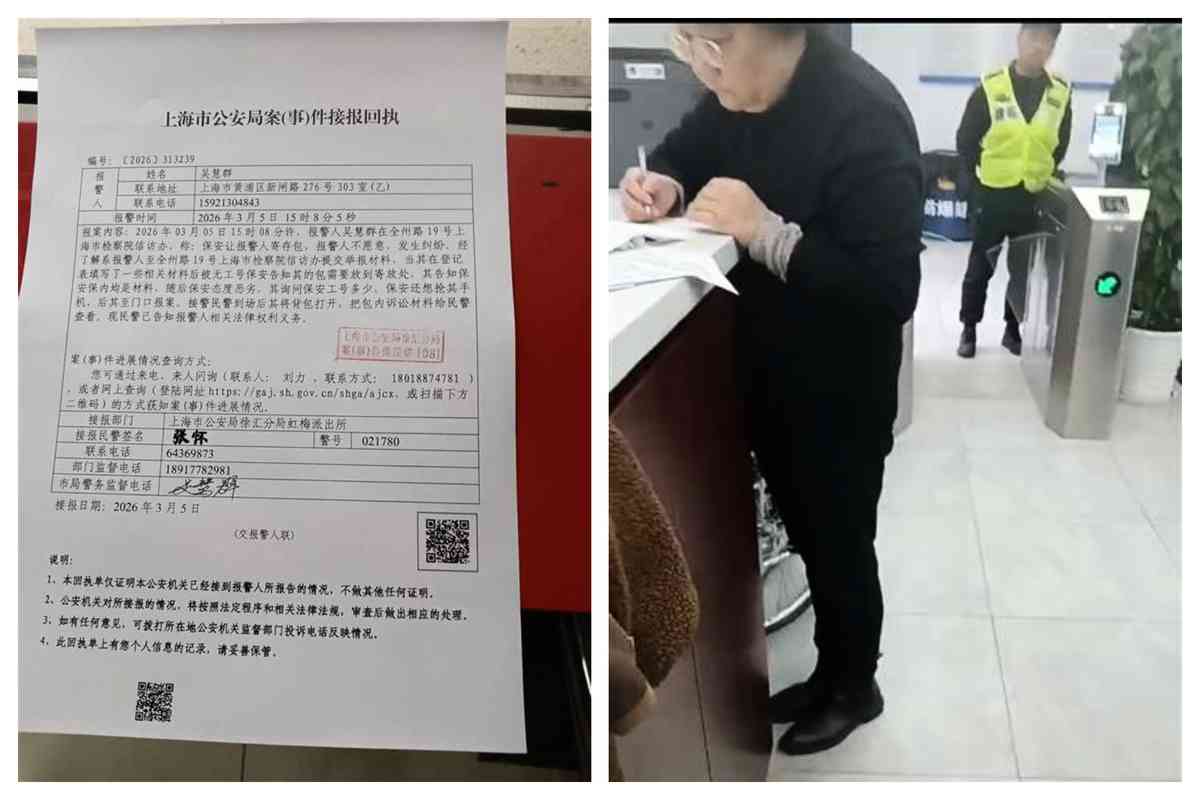 上海市公安局案(事)件接报回执
编号：〔2026〕313239
报警人
姓名 吴慧群
联系地址 上海市黄浦区新闸路276号303室(乙)
联系电话 15921304843
报警时间 2026年3月5日 15时8分5秒
报案内容：2026年03月05日15时08分许，报警人吴慧群在全州路19号上
海市检察院信访办，称：保安让报警人寄存包，报警人不愿意，发生纠纷。经
了解系报警人至全州路19号上海市检察院信访办提交举报材料，当其在登记
表填写了一些相关材料后被无工号保安告知其的包需要放到寄放处，其告知保
安保内均是材料，随后保安态度恶劣，其询问保安工号多少，保安还想抢其手
机，后其至门口报案。接警民警到场后其将背包打开，把包内诉讼材料给民警
查看。现民警已告知报警人相关法律权利义务。
案(事)件进展情况查询方式：
您可通过来电、来人问询（联系人： 刘力 ，联系方式： 18018874781 ）
，或者网上查询（登陆网址https://gaj.sh.gov.cn/shga/ajcx，或扫描下方
二维码）的方式获知案(事)件进展情况。
接报部门 上海市公安局徐汇分局虹梅派出所
接报民警签名 张怀 警号 021780
联系电话 64369873
部门监督电话 18917782981
市局警务监督电话
接报日期：2026年3月5日
（交报警人联）
说明：
1、本回执单仅证明本公安机关已经接到报警人所报告的情况，不做其他任何证明。
2、公安机关对所接报的情况，将按照法定程序和相关法律法规，审查后做出相应的处理。
3、如有任何意见，可拨打所在地公安机关监督部门投诉电话反映情况。
4、此回执单上有您个人信息的记录，请妥善保管。